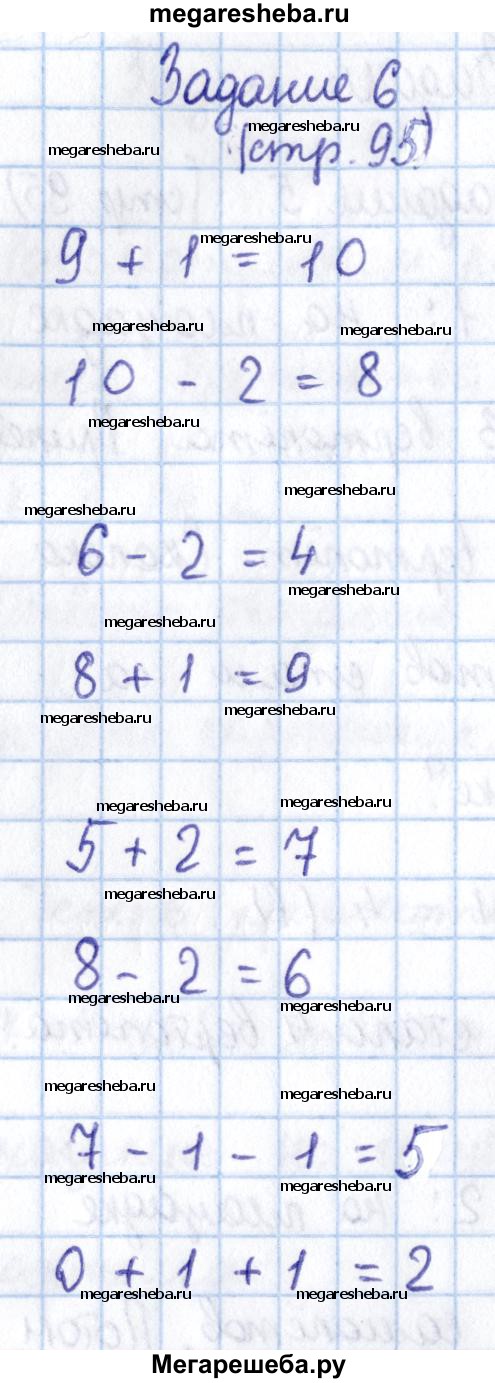 megaresheba.ru
Задание 6
megaresheba.ru
megaresheba.ru
(стр. 95)
megaresheba.ru
9 + 1 = 10
megaresheba.ru
megaresheba.ru
10 - 2 = 8
megaresheba.ru
megaresheba.ru
megaresheba.ru
6 - 2 = 4
megaresheba.ru
megaresheba.ru
8 + 1 = 9
megaresheba.ru
megaresheba.ru
megaresheba.ru
megaresheba.ru
5 + 2 = 7
megaresheba.ru
8 - 2 = 6
megaresheba.ru
megaresheba.ru
megaresheba.ru
megaresheba.ru
7 - 1 - 1 = 5
megaresheba.ru
megaresheba.ru
0 + 1 + 1 = 2
megaresheba.ru
megaresheba.ru
Мегарешеба.ру